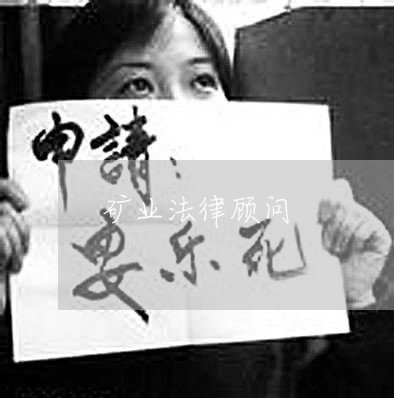 申請：
矿业法律顾问
安乐死